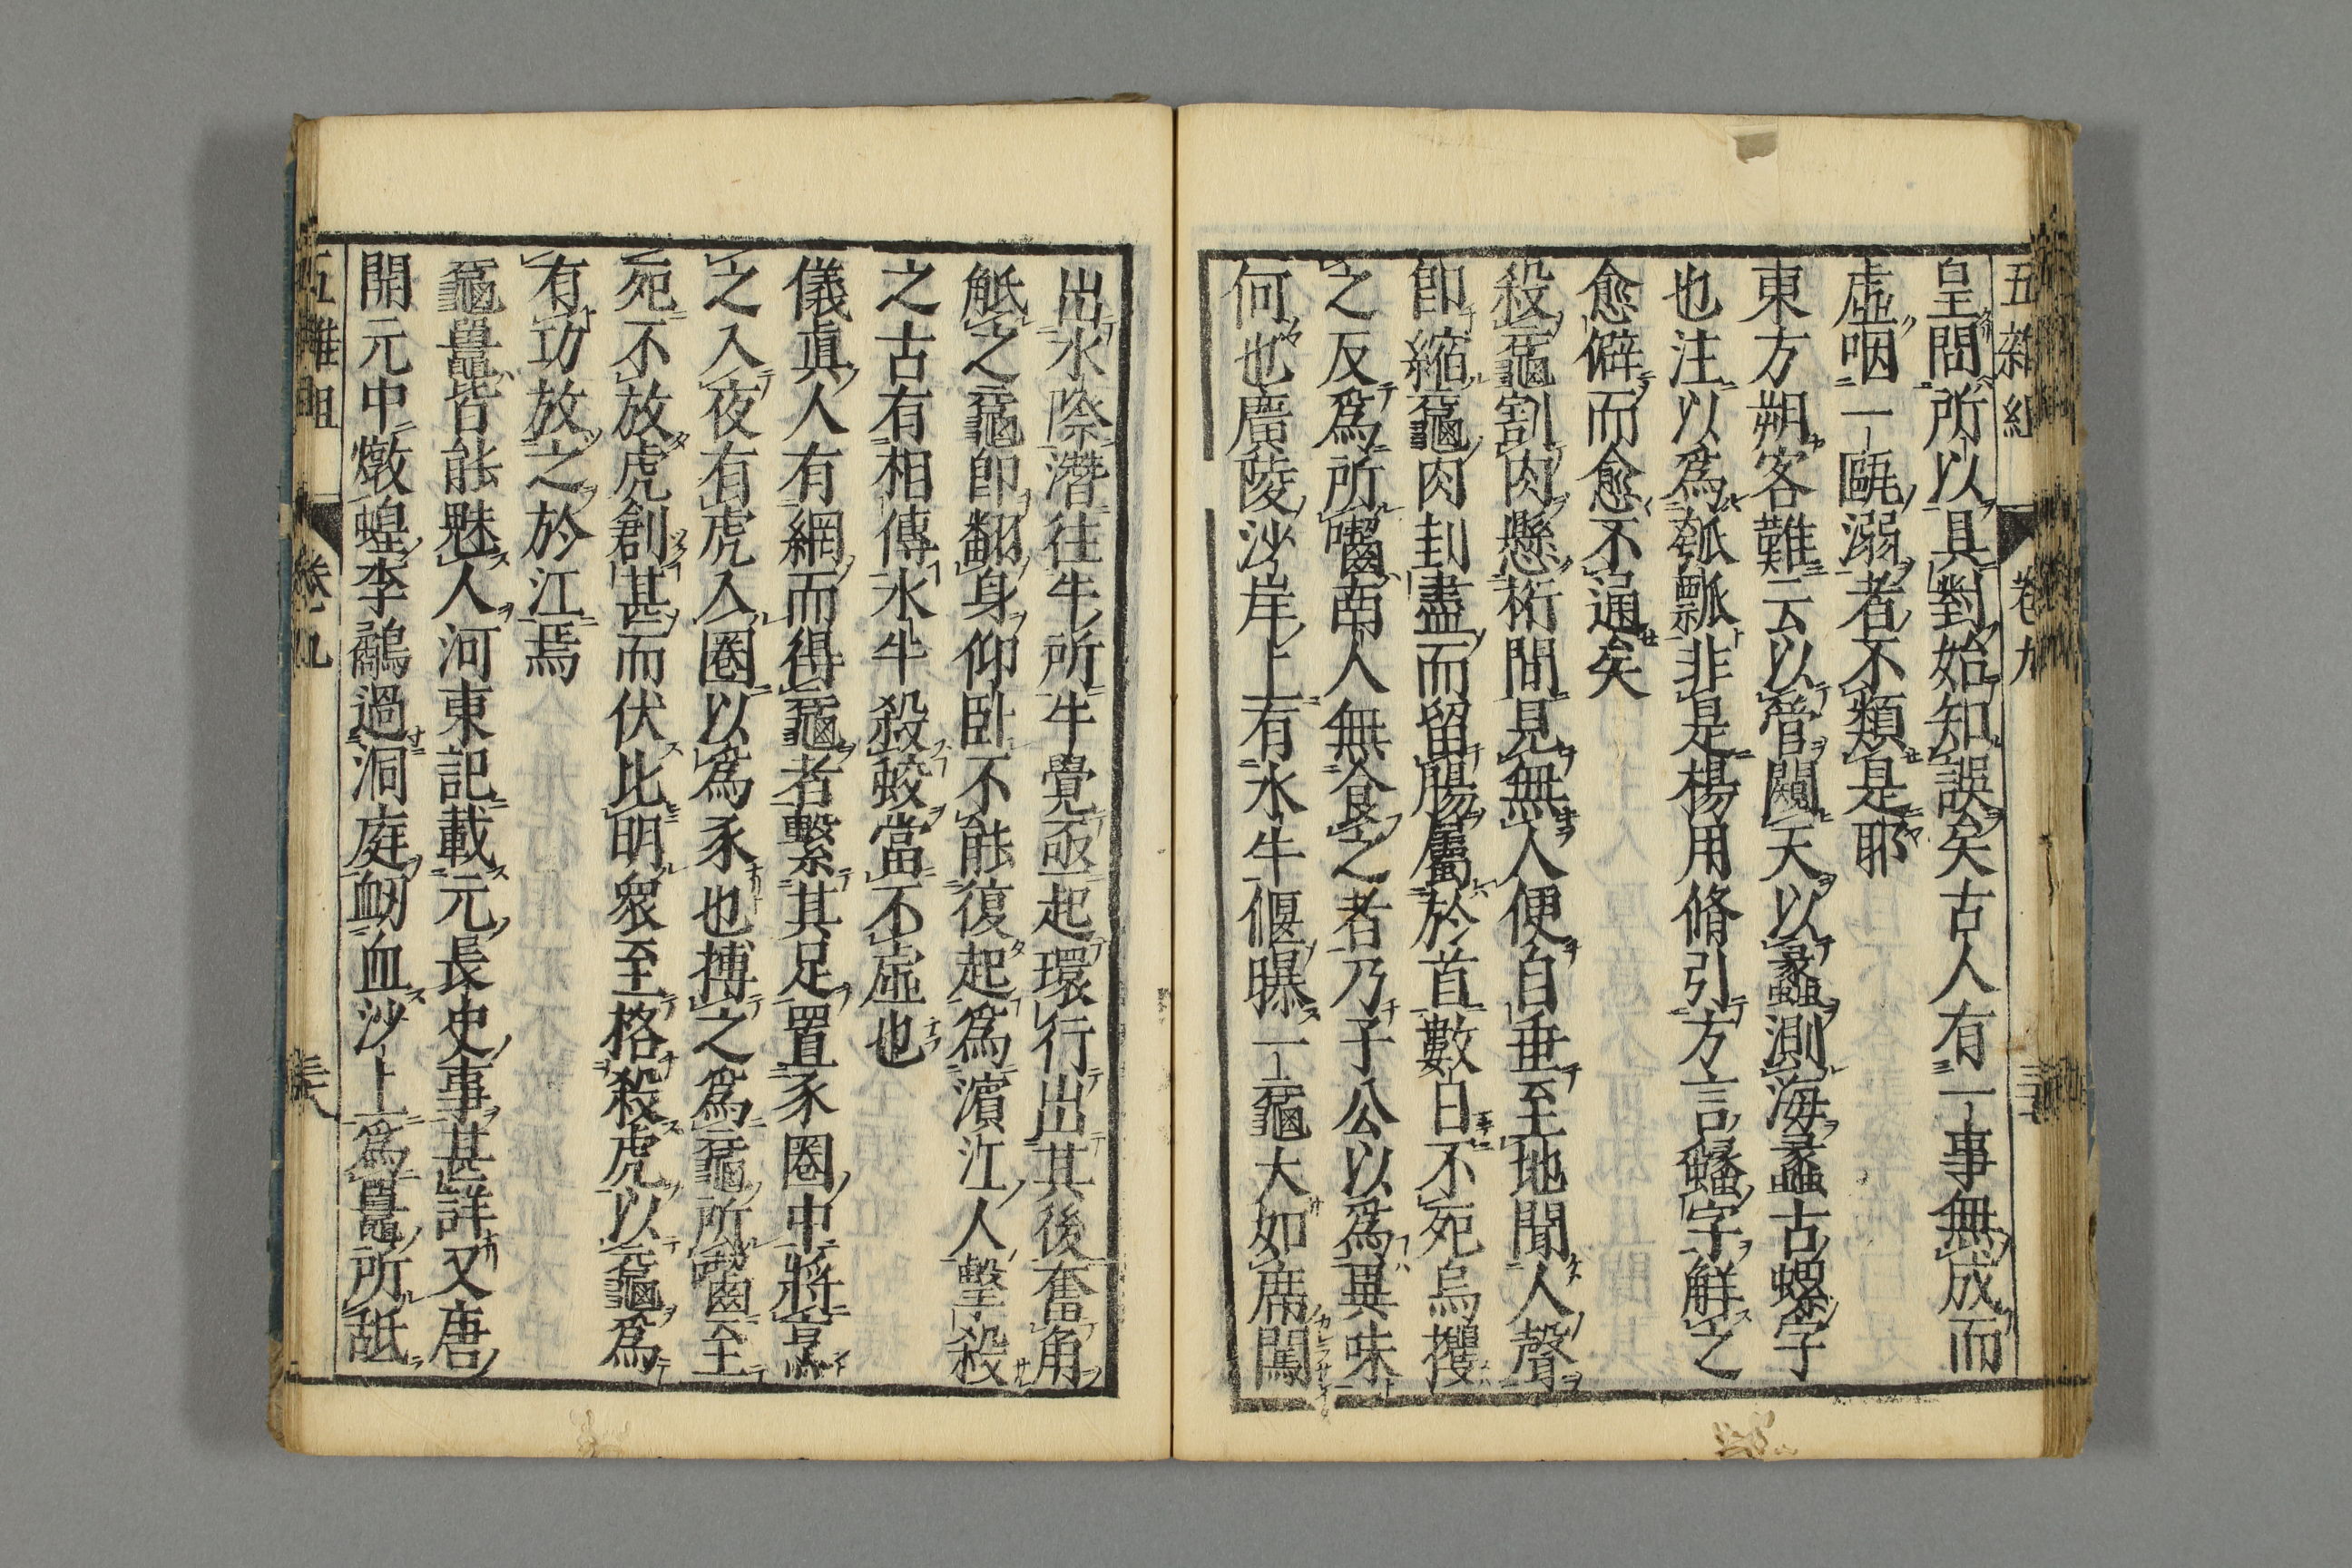 五雜組 卷九
皇問所以具對始知誤矣古人有一事無成而
虛咽一甌溺者不類是耶
東方朔客難云以䇶闚天以蠡測海蠡古螺字
也注以爲瓠瓢非是楊用脩引方言蠭字解之
愈僻而愈不通矣
殺黿割肉懸桁間見無人便自垂至地聞人聲
即縮黿肉刲盡而留腸屬於首數日不死烏攫
之反爲所囓南人無食之者乃子公以爲異味
何也廣陵沙岸上有水牛偃曝一黿大如席闖
出水際潛往牛所牛覺亟起環行出其後奮角
觝之黿即翻身仰臥不能復起爲濱江人擊殺
之古有相傳水牛殺蛟當不虛也
儀眞人有網而得黿者繫其足置豕圈中將烹
之入夜有虎入圈以爲豕也搏之爲黿所囓至
死不放虎創甚而伏比明衆至格殺虎以黿爲
有功放之於江焉
黿鼉皆能魅人河東記載元長史事甚詳又唐
開元中燉蝗李鷸過洞庭衂血沙上爲鼉所舐
五雜組 卷九